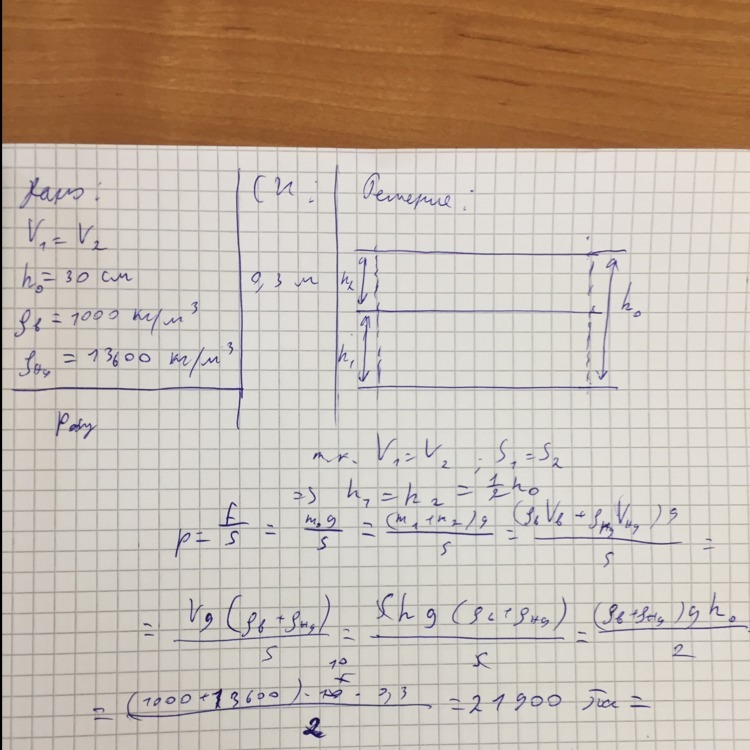 Дано:
V₁ = V₂
h₀ = 30 см
ρв = 1000 кг/м³
ρHg = 13600 кг/м³
Pобщ
СИ:
0,3 м
Решение:
h₂
h₁
h₀
т.к. V₁ = V₂ ; S₁ = S₂
=> h₁ = h₂ = 1/2 h₀
p = F/S = m₀g/S = (m₁ + m₂)g/S = (ρвVв + ρHgVHg)g/S =
= Vg(ρв + ρHg)/S = Shg(ρв + ρHg)/S = (ρв + ρHg)gh₀/2
= (1000 + 13600) · 10 · 0,3/2 = 21900 Па =